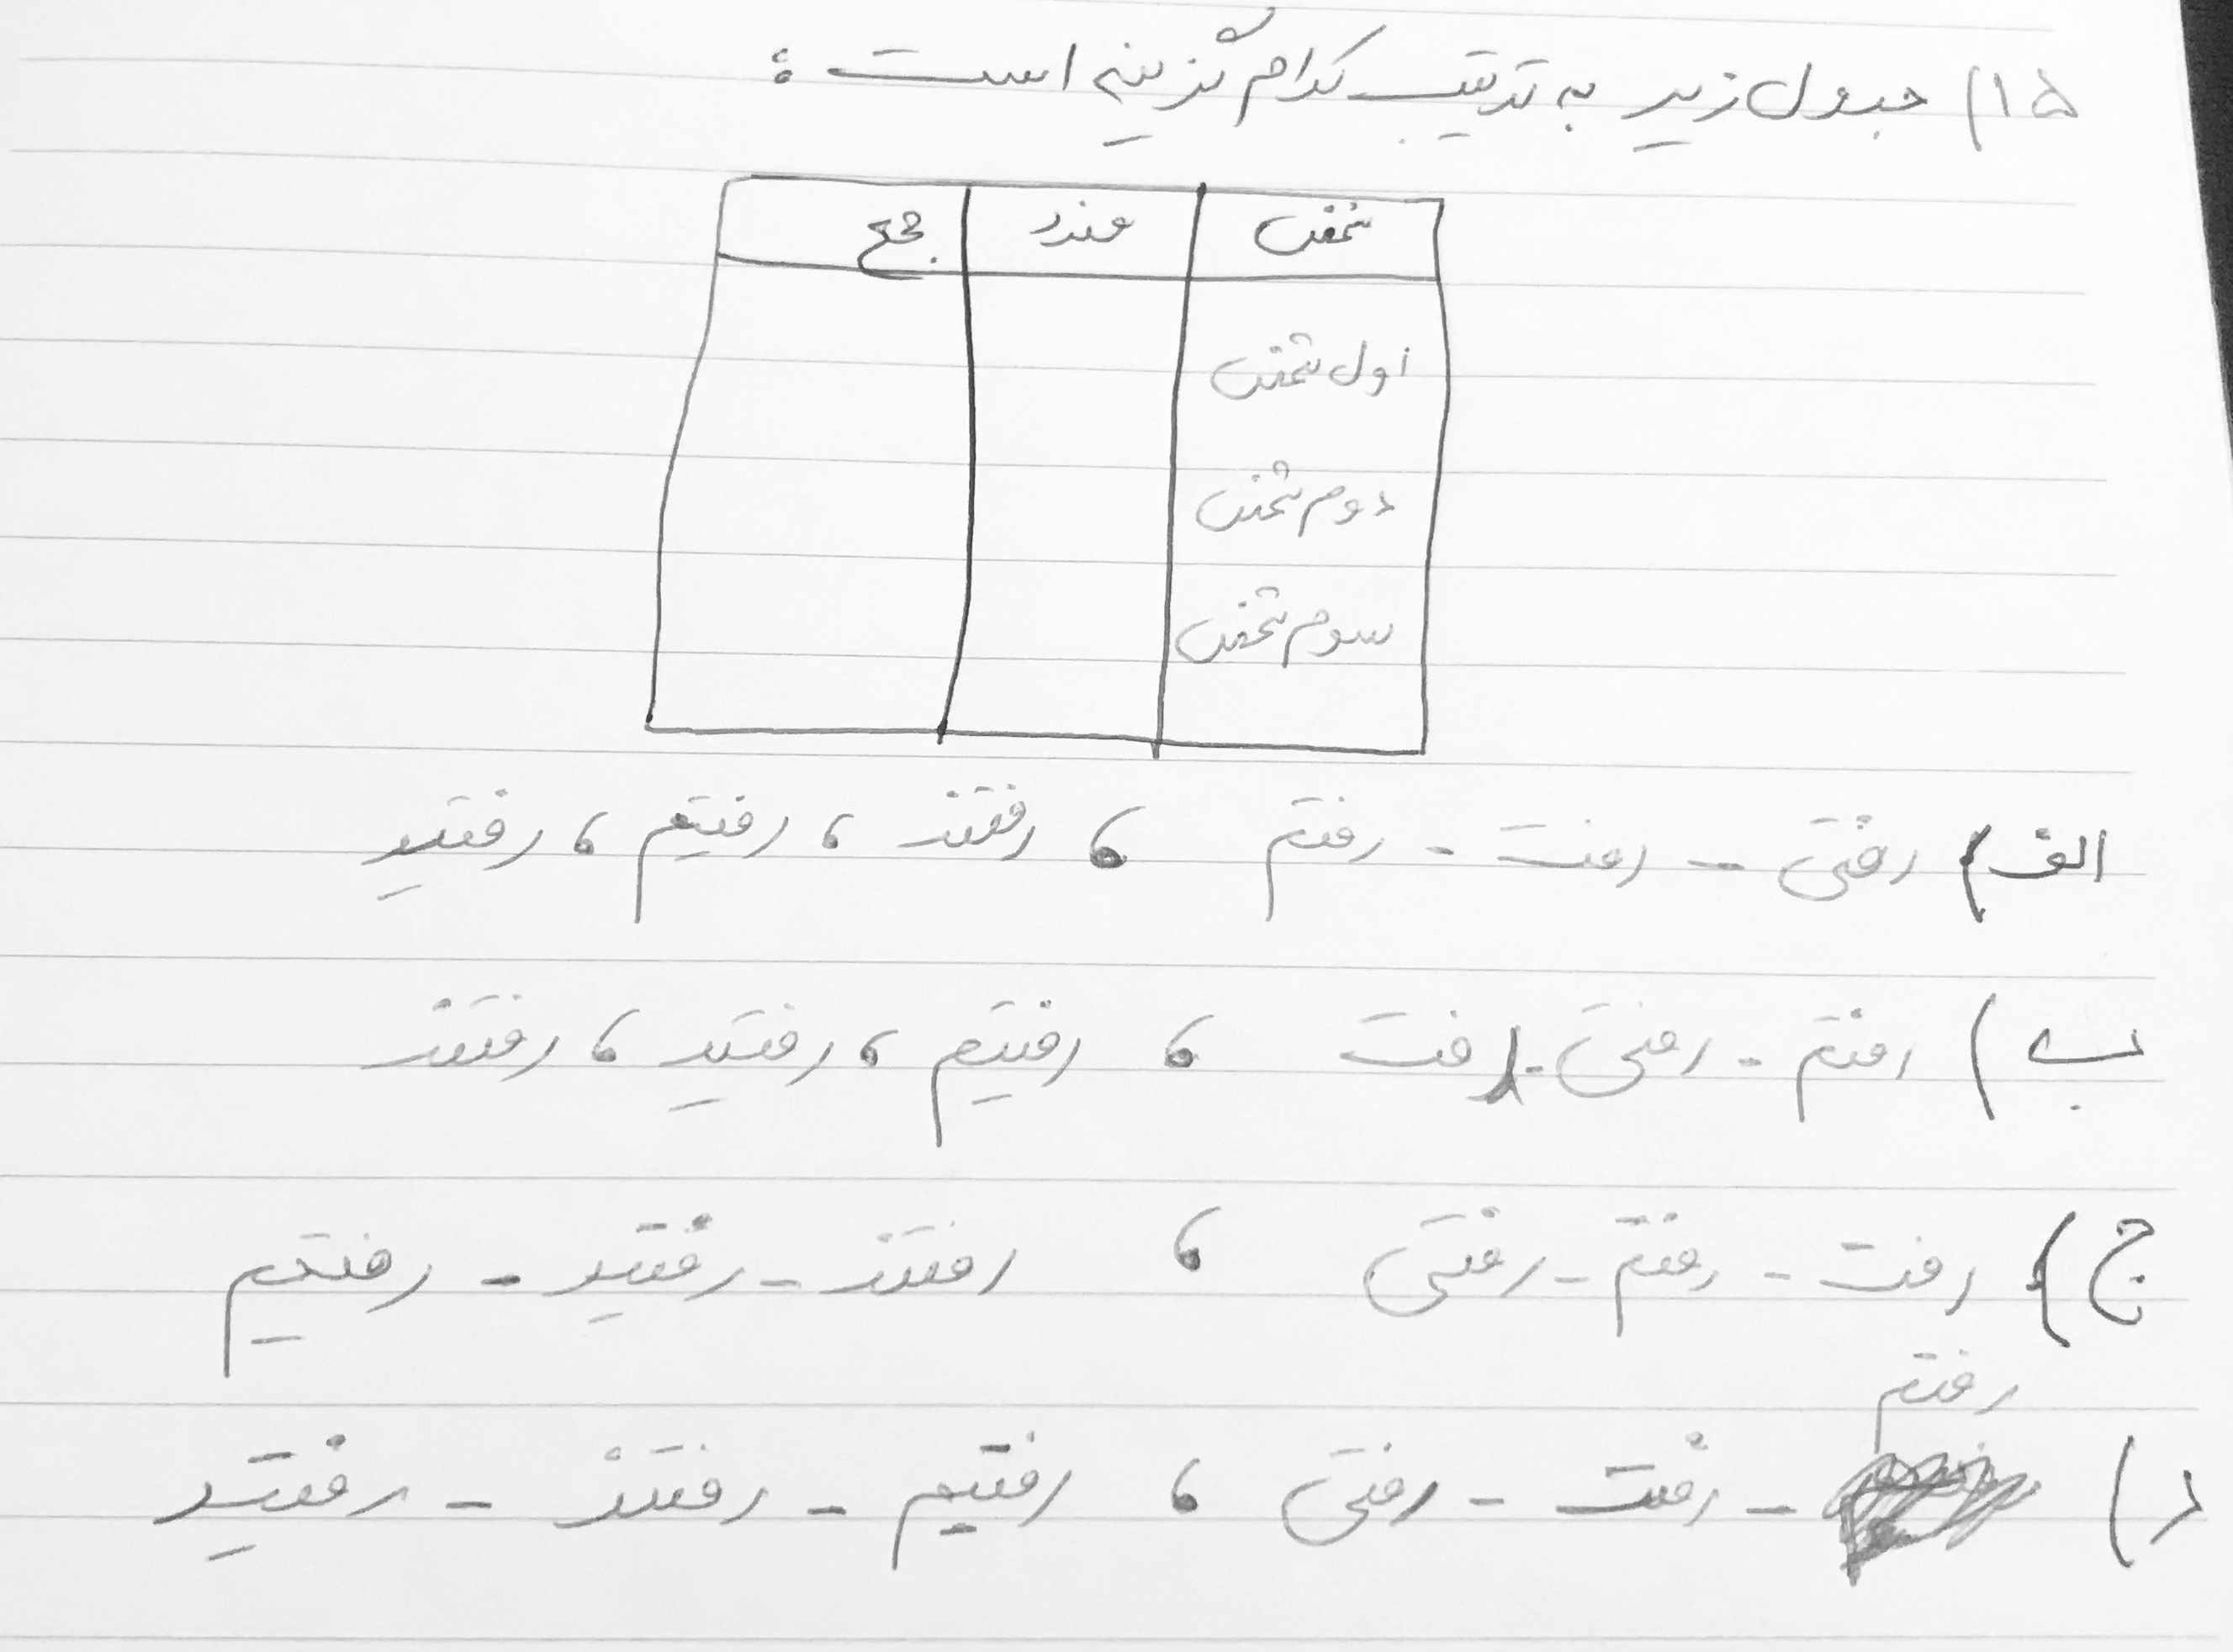 ۱۵) جدول زیر به ترتیب کدام گزینه است :
شخص مفرد جمع
اول شخص
دوم شخص
سوم شخص
الف) رفتی - رفت - رفتم ، رفتند ، رفتیم ، رفتید
ب) رفتم - رفتی - رفت ، رفتیم ، رفتید ، رفتند
ج) رفت - رفتم - رفتی ، رفتند - رفتید - رفتیم
رفتم
د) - رفت - رفتی ، رفتیم - رفتند - رفتید